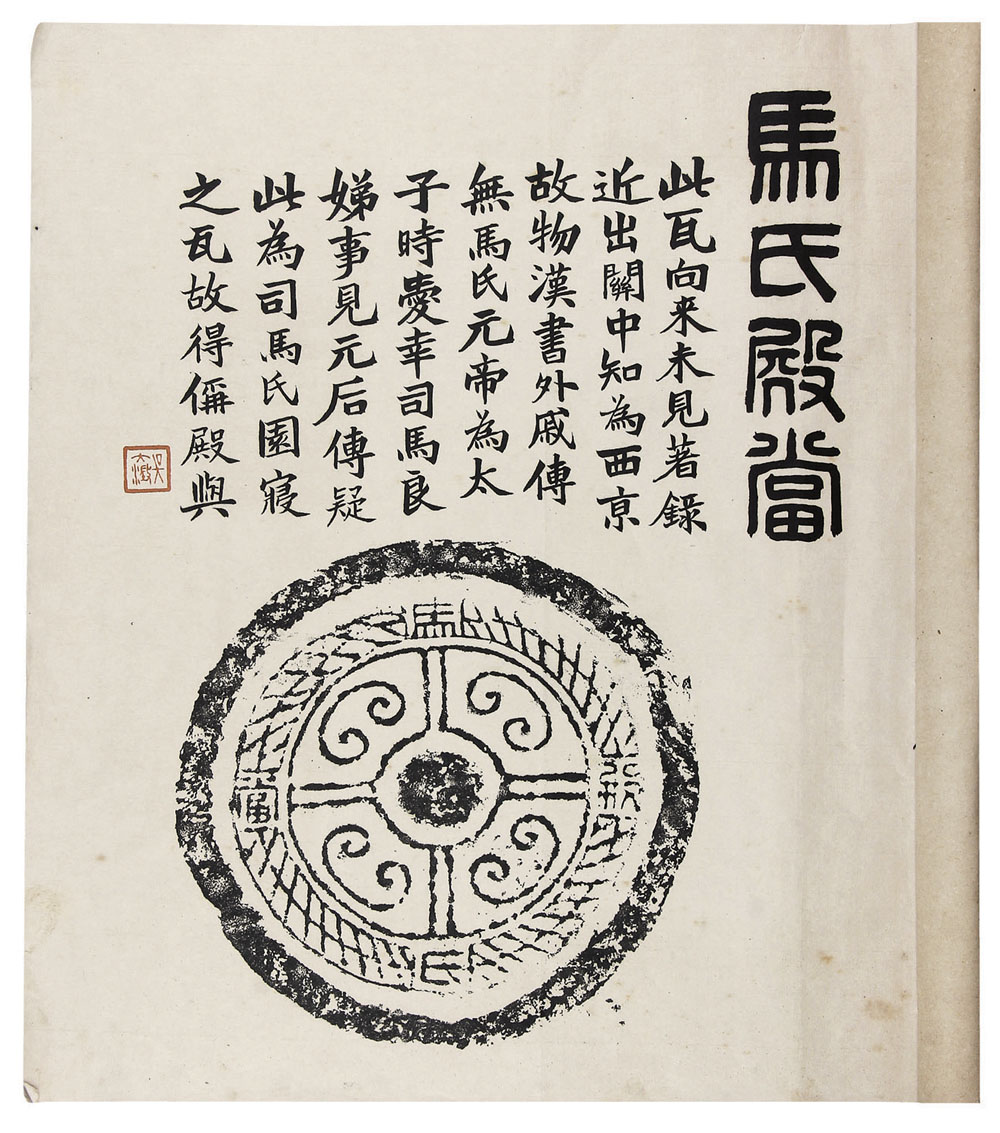 馬氏殿當
此瓦向来未見著錄
近出關中知為西亰
故物漢書外戚傳
無馬氏元帝為太
子時愛幸司馬良
娣事見元后傳疑
此為司馬氏園寢
之瓦故得偁殿與
馬
殿
氏
當